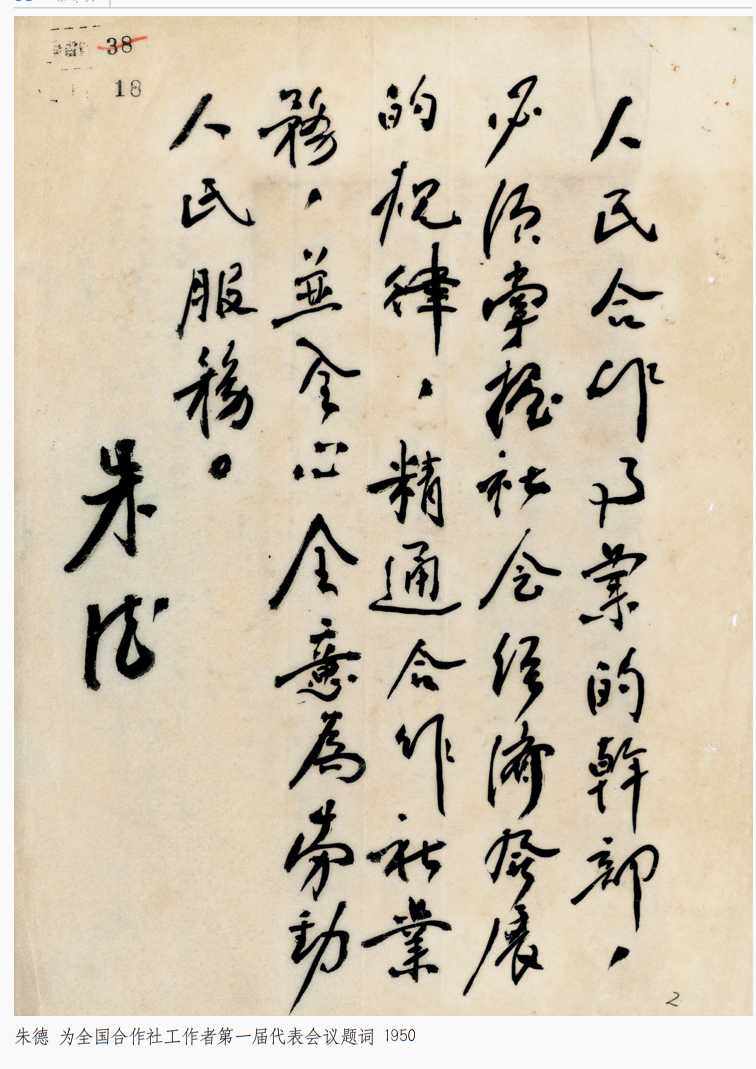 38
18
人民合作事業的幹部，
必須掌握社会经濟發展
的規律，精通合作社業
務，並全心全意為劳動
人民服務。
朱德
2
朱德 为全国合作社工作者第一届代表会议题词 1950